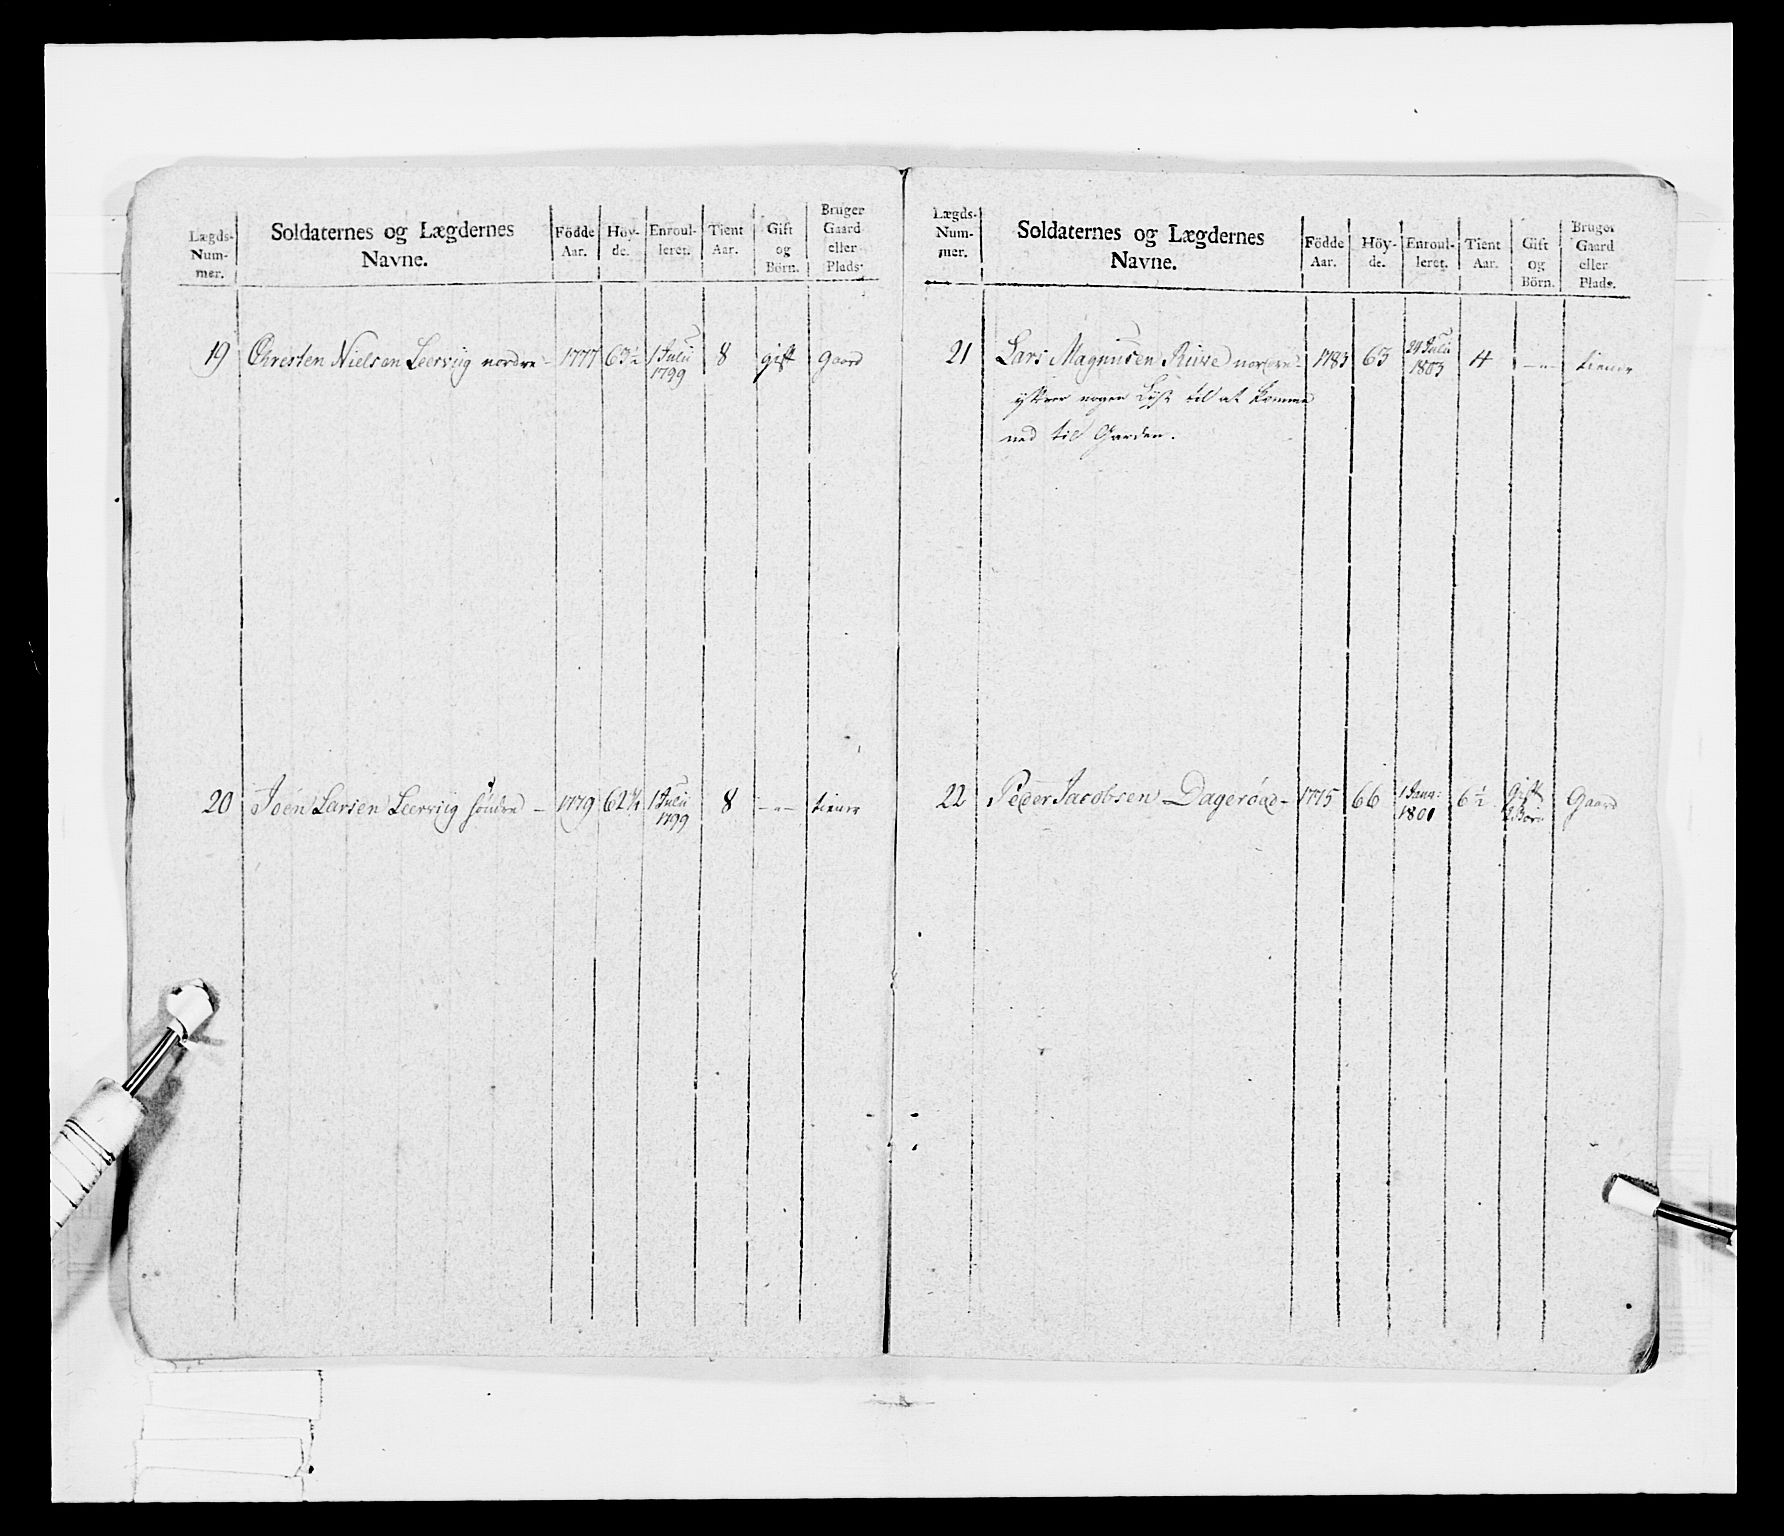 Lægds-
Num-
mer.
Soldaternes og Lægdernes
Navne.
Födde
Aar.
Höy-
de.
Enroul-
leret.
Tient
Aar.
Gift
og
Börn.
Bruger
Gaard
eller
Plads.
19 Chresten Nielsen Leerviig nordre - 1777 63½ 1 Julii 1799 8 gift Gaard
20 Joen Larsen Leerviig söndre - 1779 62¼ 1 Julii 1799 8 -"- tiener
Lægds-
Num-
mer.
Soldaternes og Lægdernes
Navne.
Födde
Aar.
Höy-
de.
Enroul-
leret.
Tient
Aar.
Gift
og
Börn.
Bruger
Gaard
eller
Plads.
21 Lars Magnusen nordre - 1783 63 24 Julii 1803 4 -"- tiener
ytrer nogen Lyst til at komme
ned til Garden.
22 Peder Jacobsen Dageröed - 1775 66 1 Janr: 1801 6½ Gift Börn Gaard